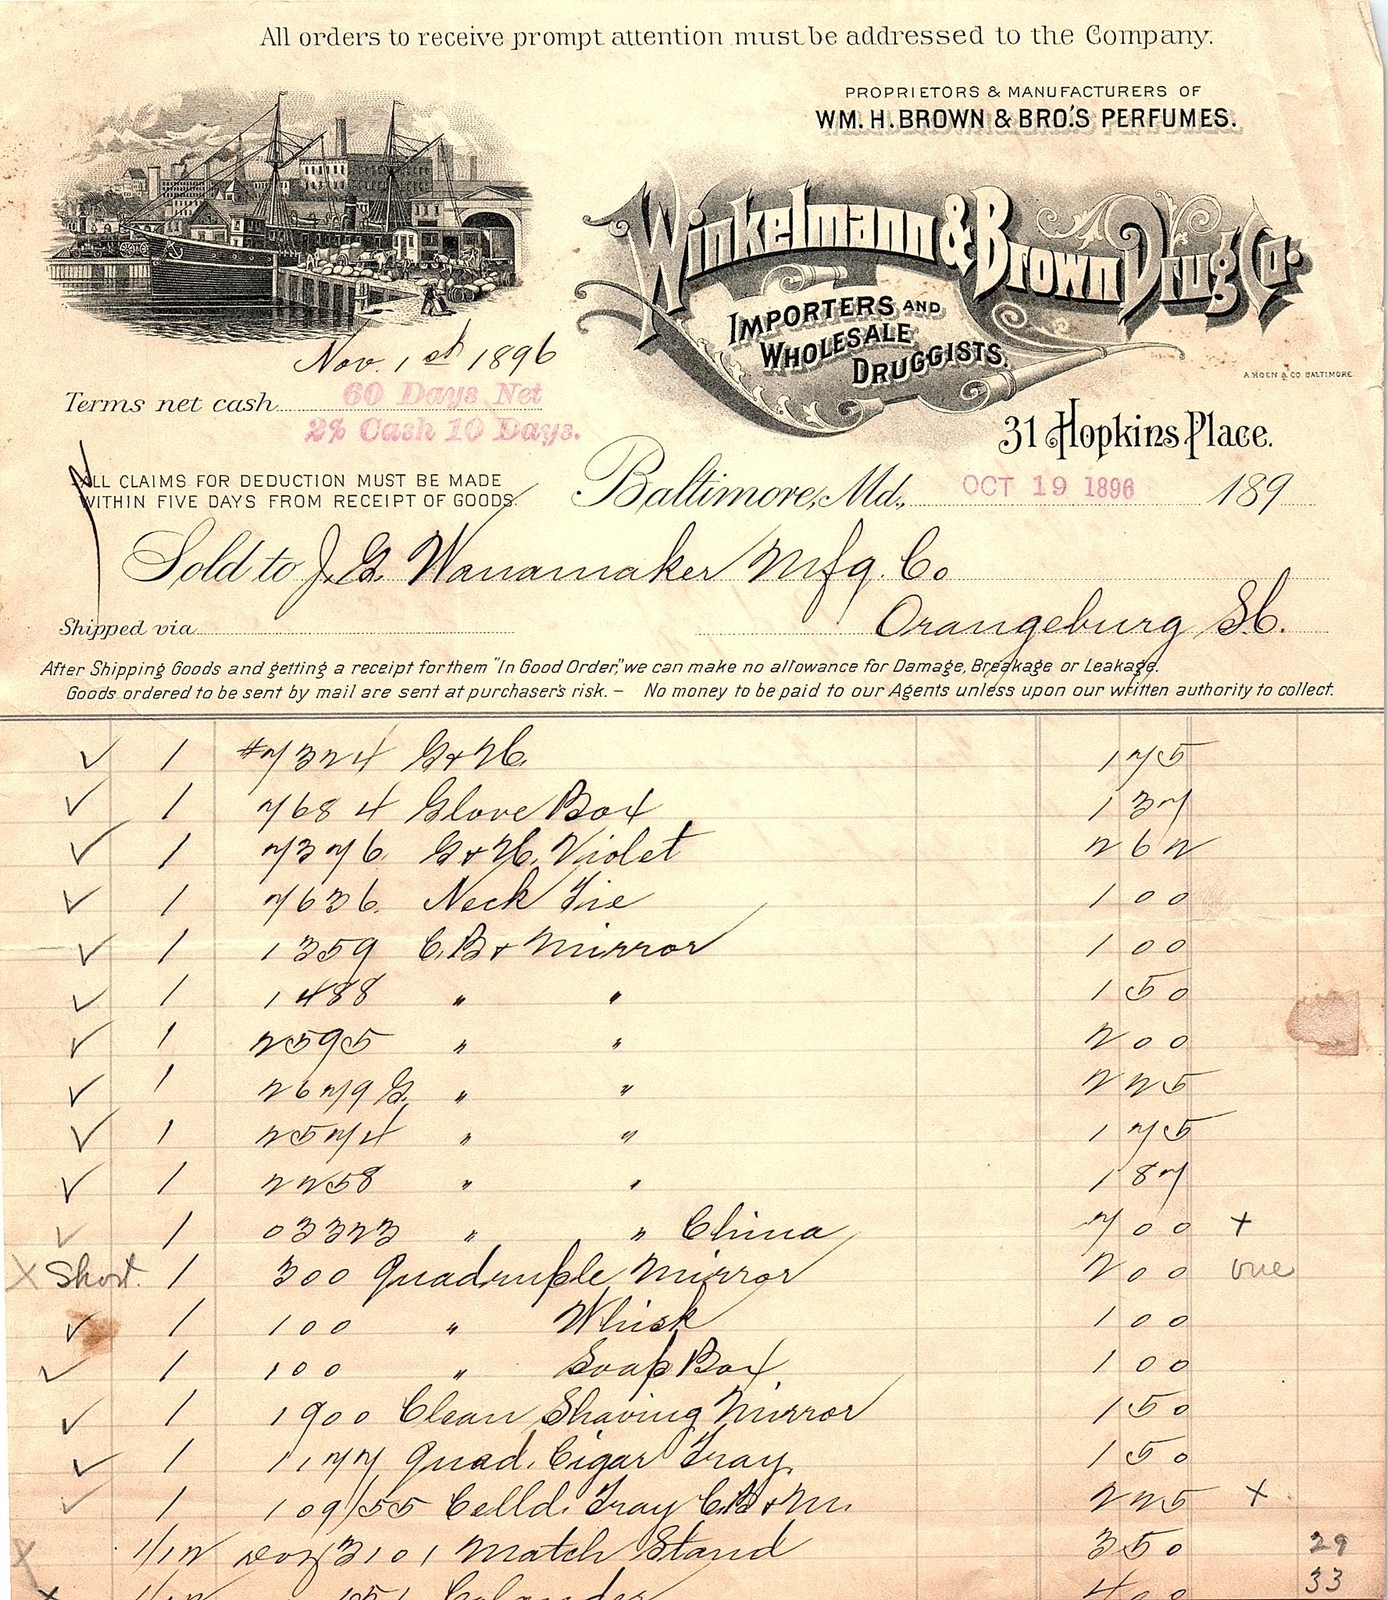 All orders to receive prompt attention must be addressed to the Company.
PROPRIETORS & MANUFACTURERS OF
WM. H. BROWN & BRO'S PERFUMES.
Winkelmann & Brown Drug Co.
IMPORTERS AND
WHOLESALE
DRUGGISTS.
A. HOEN & CO. BALTIMORE
31 Hopkins Place.
Nov. 1st 1896
Terms net cash 60 Days Net
2% Cash 10 Days.
ALL CLAIMS FOR DEDUCTION MUST BE MADE
WITHIN FIVE DAYS FROM RECEIPT OF GOODS.
Baltimore, Md., OCT 19 1896 189
Sold to J. G. Wanamaker Mfg. Co
Shipped via Orangeburg S.C.
After Shipping Goods and getting a receipt for them "In Good Order," we can make no allowance for Damage, Breakage or Leakage.
Goods ordered to be sent by mail are sent at purchaser's risk. – No money to be paid to our Agents unless upon our written authority to collect.
✓ 1 #7324 G & H. 1 75
✓ 1 7684 Glove Box 1 37
✓ 1 7376. G & H. Violet 2 62
✓ 1 7636. Neck Tie 1 00
✓ 1 1359 C.B & Mirror 1 00
✓ 1 1488 " " 1 50
✓ 1 2595 " " 2 00
✓ 1 2679 G. " " 2 25
✓ 1 2574 " " 1 75
✓ 1 2258 " " 1 87
✓ 1 03323 " " China 7 00 +
X Short. 1 300 Quadruple Mirror 2 00 one
✓ 1 100 " Whisk 1 00
✓ 1 100 " Soap Box 1 00
✓ 1 1900 Clean Shaving Mirror 1 50
✓ 1 1177 Quad. Cigar Tray. 1 50
✓ 1 109/55 Celld. Tray C.B & M. 2 25 x
X 1/12 doz 3101 Match Stand 3 50 29
x 1/12 151 Calander 4 00 33